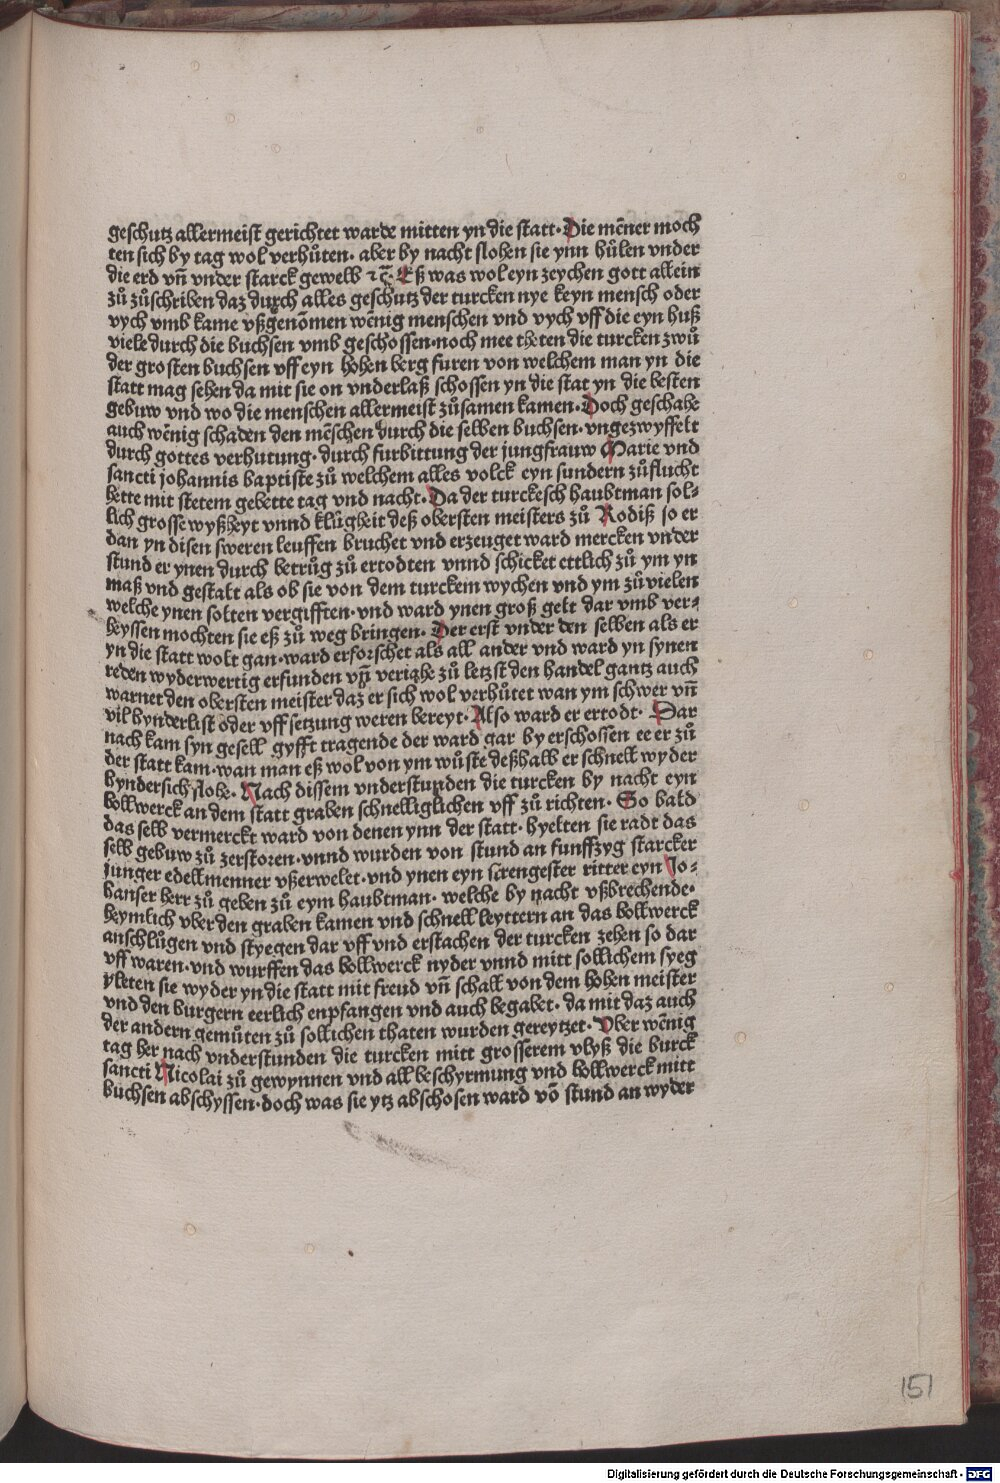 geschutz allermeist gerichtet warde mitten yn die statt· Die mēner moch
ten sich by tag wol verhůten· aber by nacht flohen sie ynn hůlen vnder
die erd vñ vnder starck gewelb ⁊ c̄· Eß was wol eyn zeychen gott allein
zů zůschriben daz durch alles geschůtz der turcken nye keyn mensch oder
vych vmb kame vßgenōmen wēnig menschen vnd vych vff die eyn huß
viele durch die buchsen vmb geschossen· noch mee theten die turcken zwů
der grosten buchsen vff eyn hohen berg furen von welchem man yn die
statt mag sehen da mit sie on vnderlaß schossen yn die stat yn die besten
gebuw vnd wo die menschen allermeist zůsamen kamen· Doch geschahe
auch wēnig schaden den mēschen durch die selben buchsen· vngezwyffelt
durch gottes verhutung· durch furbittung der jungfrauw Marie vnd
sancti johannis baptiste zů welchem alles volck eyn sundern zůflucht
hette mit stetem gebette tag vnd nacht· Da der turckesch haubtman sol⸗
lich grosse wyßheyt vnnd klůgheit deß obersten meisters zů Rodiß so er
dan yn disen sweren leuffen bruchet vnd erzeuget ward mercken vnder
stund er ynen durch betrůg zů ertodten vnnd schicket ettlich zů ym yn
maß vnd gestalt als ob sie von dem turckem wychen vnd ym zů vielen
welche ynen solten vergifften· vnd ward ynen groß gelt dar vmb ver⸗
heyssen mochten sie eß zů weg bringen· Der erst vnder den selben als er
yn die statt wolt gan· ward erforschet als all ander vnd ward yn synen
reden wyderwertig erfunden vñ veriahe zů letzst den handel gantz auch
warnet den obersten meister daz er sich wol verhůtet wan ym schwer vñ
vil hynderlist oder vffsetzung weren bereyt· Also ward er ertodt· Dar
nach kam syn gesell gyfft tragende der ward gar by erschossen ee er zů
der statt kam· wan man eß wol von ym wůste deßhalb er schnell wyder
hyndersich flohe· Nach dissem vnderstunden die turcken by nacht eyn
bollwerck an dem statt graben schnelliglichen vff zů richten· So bald
das selb vermerckt ward von denen ynn der statt· hyelten sie radt das
selb gebuw zů zerstoren· vnnd wurden von stund an funffzyg starcker
junger edell menner vßerwelet· vnd ynen eyn strengester ritter eyn Jo⸗
hanser herr zů geben zů eym haubtman· welche by nacht vßbrechende·
heymlich vber den graben kamen vnd schnell leyttern an das bollwerck
anschlůgen vnd styegen dar vff vnd erstachen der turcken zehen so dar
vff waren· vnd wurffen das bollwerck nyder vnnd mitt sollichem syeg
yleten sie wyder yn die statt mit freud vñ schall von dem hohen meister
vnd den burgern eerlich enpfangen vnd auch begabet· da mit daz auch
der andern gemůten zů sollichen thaten wurden gereytzet· Vber wēnig
tag her nach vnderstunden die turcken mitt grosserem vlyß die burck
sancti Nicolai zů gewynnen vnd all beschyrmung vnd bollwerck mitt
buchsen abschyssen· doch was sie ytz abschosen ward vō stund an wyder
151
Digitalisierung gefördert durch die Deutsche Forschungsgemeinschaft - DFG